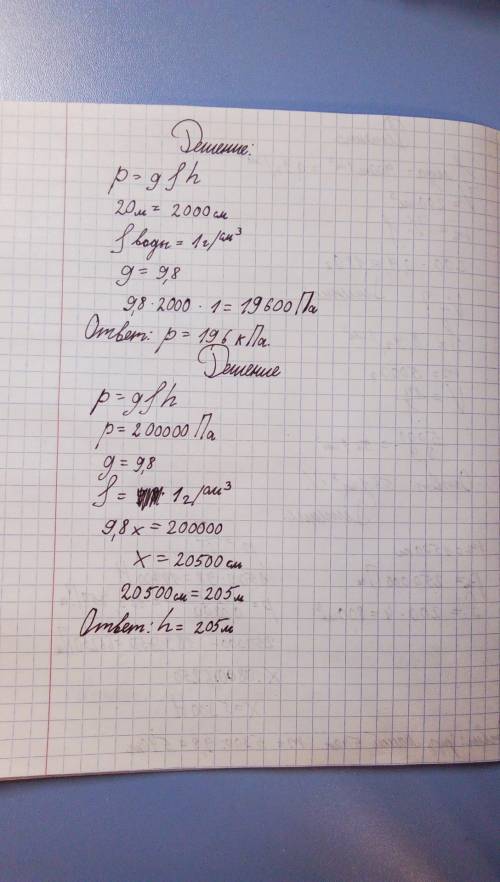 Решение:
p = gρh
20м = 2000см
ρ воды = 1г/см³
g = 9,8
9,8·2000·1 = 19600 Па
Ответ: p = 19,6 кПа.
Решение
p = gρh
p = 200000 Па
g = 9,8
ρ = 1г/см³
9,8x = 200000
x = 20500 см
20500см = 205м
Ответ: h = 205м